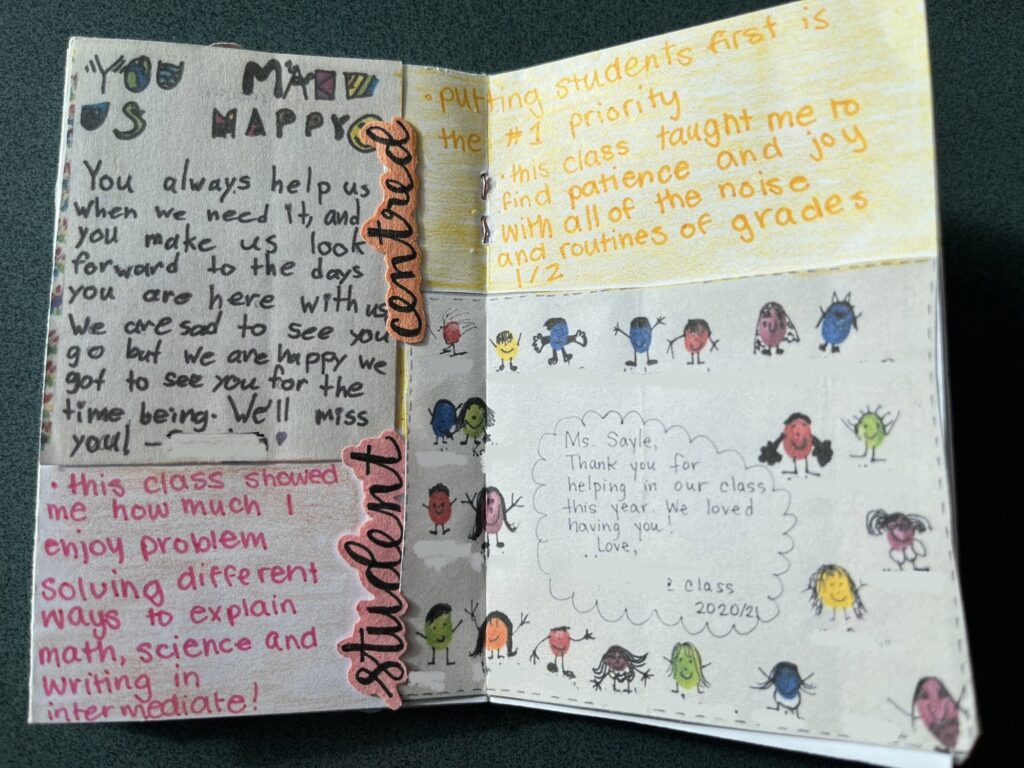 YOU MAKE
US HAPPY
You always help us
when we need it, and
you make us look
forward to the days
you are here with us
We are sad to see you
go but we are happy we
got to see you for the
time being. We'll miss
you! -
• this class showed
me how much I
enjoy problem
solving different
ways to explain
math, science and
writing in
intermediate!
student
centred
• putting students first is
the #1 priority
• this class taught me to
find patience and joy
with all of the noise
and routines of grades
1/2
Ms. Sayle,
Thank you for
helping in our class
this year. We loved
having you!
Love,
class
2020/21